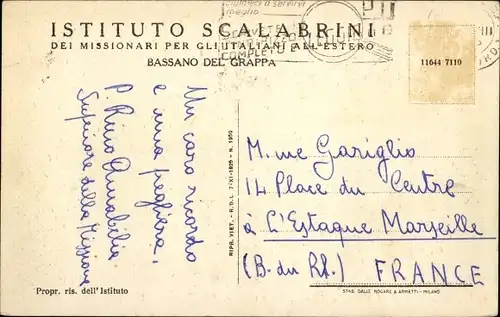 ISTITUTO SCALABRINI
DEI MISSIONARI PER GLI ITALIANI ALL'ESTERO
BASSANO DEL GRAPPA
meglio
COMPLETE
11644 7119
Un caro ricordo
e una preghiera.
P. Rino
Superiore della Missione
RIPR. VIET. - R.D.L. 7-XI-1925 - N. 1950
M.me Gariglio
14 Place du Centre
à L'Estaque Marseille
(B. du Rh.) FRANCE
Propr. ris. dell'Istituto
STAB. DALLE NOGARE & ARMETTI - MILANO